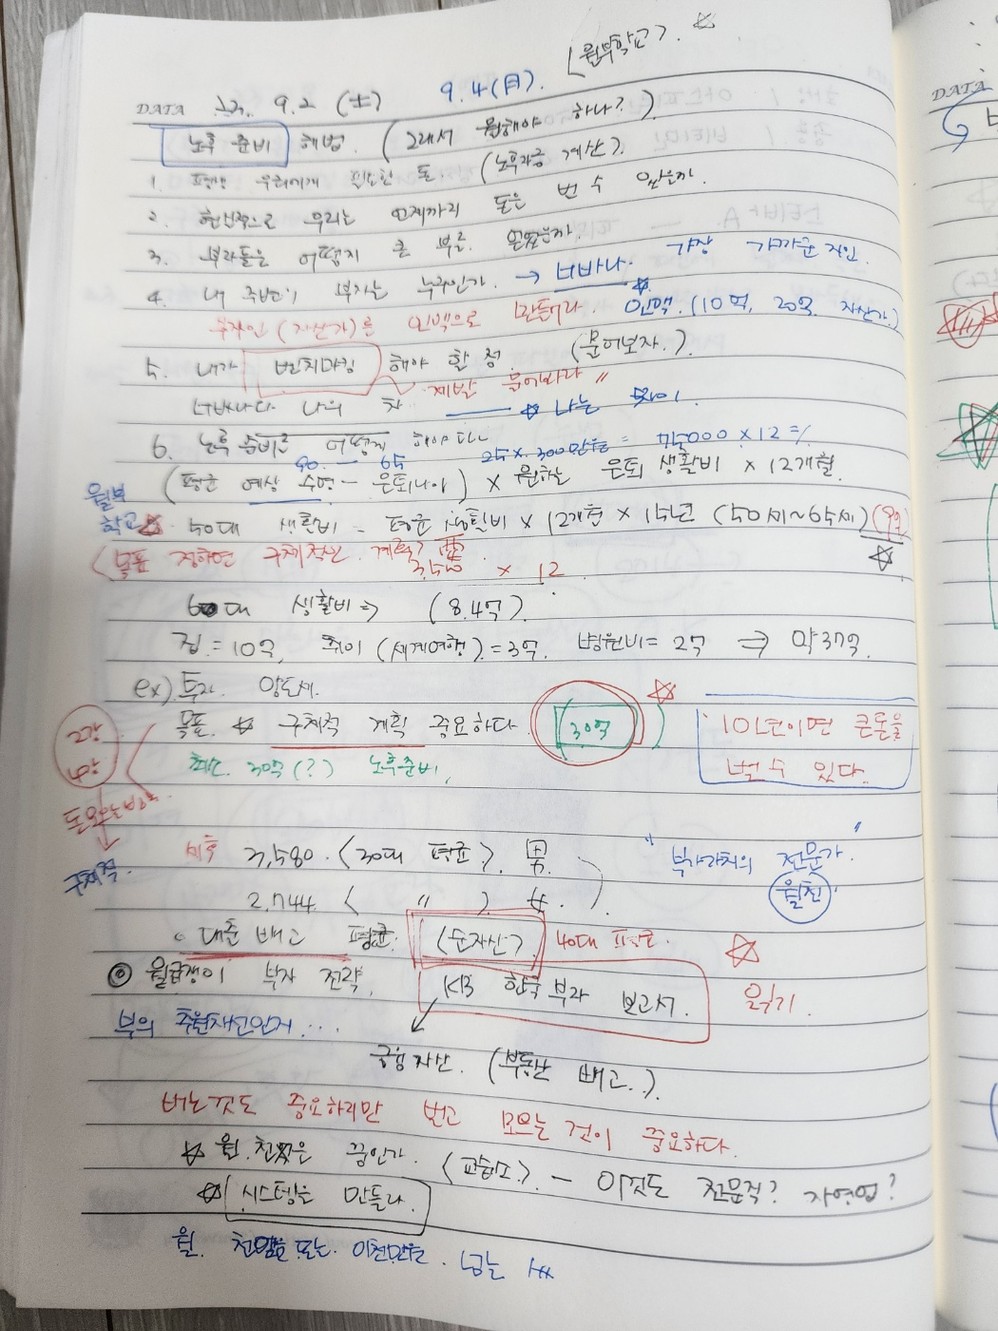 <월부학교>. ☆
DATA 23. 9.2 (土) 9.4(月).
노후 준비 해법. (그래서 뭘해야 하나?)
1. 평생 우리에게 필요한 돈. (노후자금 계산).
2. 현실적으로 우리는 언제까지 돈을 벌 수 있을까.
3. 부자들은 어떻게 큰 부를 얻었을까.
4. 내 주변의 부자는 누구인가. → 너바나. 가장 가까운 지인.
(자산가)를 인맥으로 만들어라. 인맥. (10억, 20억 자산가.)
5. 내가 벤치마킹 해야 할 점. (물어보자.)
제발 물어봐라 "
너바나와 나의 차 ☆ 나는
6. 노후 준비를 어떻게 해야 하나
90 — 65 25 x 300만원 =
(평균 예상 수명 - 은퇴나이) × 원하는 은퇴 생활비 × 12개월.
월부
학교☆ 50대 생활비 = 평균 생활비 × 12개월 × 15년 (50세~65세) (9억)
(목표 정하면 구체적인 계획?
× 12
60대 생활비 ⇒ (8.4억).
집 = 10억, 취미 (세계여행) = 3억. 병원비 = 2억 ⇒ 약 37억.
ex) 투자. 양도세.
목표. ☆ 구체적 계획 중요하다. 30억 ☆
최소 30억(?) 노후준비.
10년이면 큰돈을
벌 수 있다.
2강
4강
돈모으는방법
구체적.
세후 3,580. <30대 평균.> 男.
2,744 < " > 女.
" 부자가치의 전문가. "
월천
○ 대출 빼고 평균. (순자산?) 40대 평균. ☆
◎ 월급쟁이 부자 전략, KB 한국 부자 보고서. 읽기
부의 추월차선인거...
금융자산. (부동산 빼고.)
버는것도 중요하지만 벌고 모으는 것이 중요하다.
☆ 월.천은 꿈인가. <교습소> — 이것도 전문직? 자영업?
☆ 시스템을 만들라.
월. 천만원 또는 이천만원. 넘는